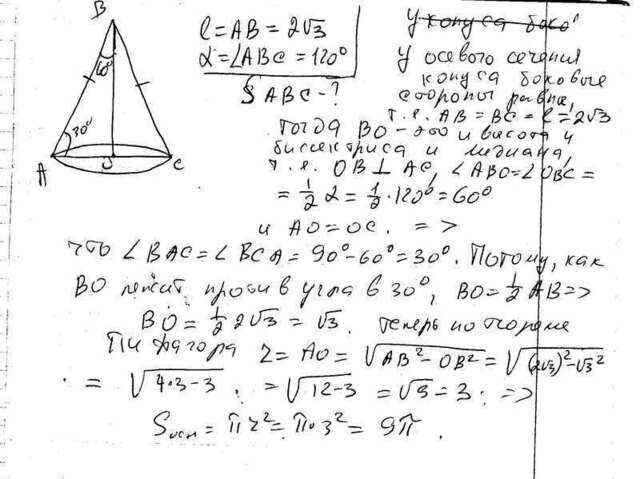 B
60°
30°
A
O
C
l = AB = 2√3
α = ∠ABC = 120°
S ABC - ?
У конуса боко
У осевого сечения
конуса боковые
стороны равны,
т.е. AB = BC = l = 2√3
Тогда BO - это и высота и
биссектриса и медиана,
т.е. OB ⊥ AC, ∠ABO = ∠OBC =
= 1/2 α = 1/2 · 120° = 60°
и AO = OC. =>
что ∠BAC = ∠BCA = 90° - 60° = 30°. Потому, как
BO лежит против угла в 30°, BO = 1/2 AB =>
BO = 1/2 2√3 = √3. теперь по теореме
Пифагора r = AO = √(AB² - OB²) = √((2√3)² - √3²)
= √(4·3-3) = √(12-3) = √9 = 3. =>
Sосн = πr² = π·3² = 9π.